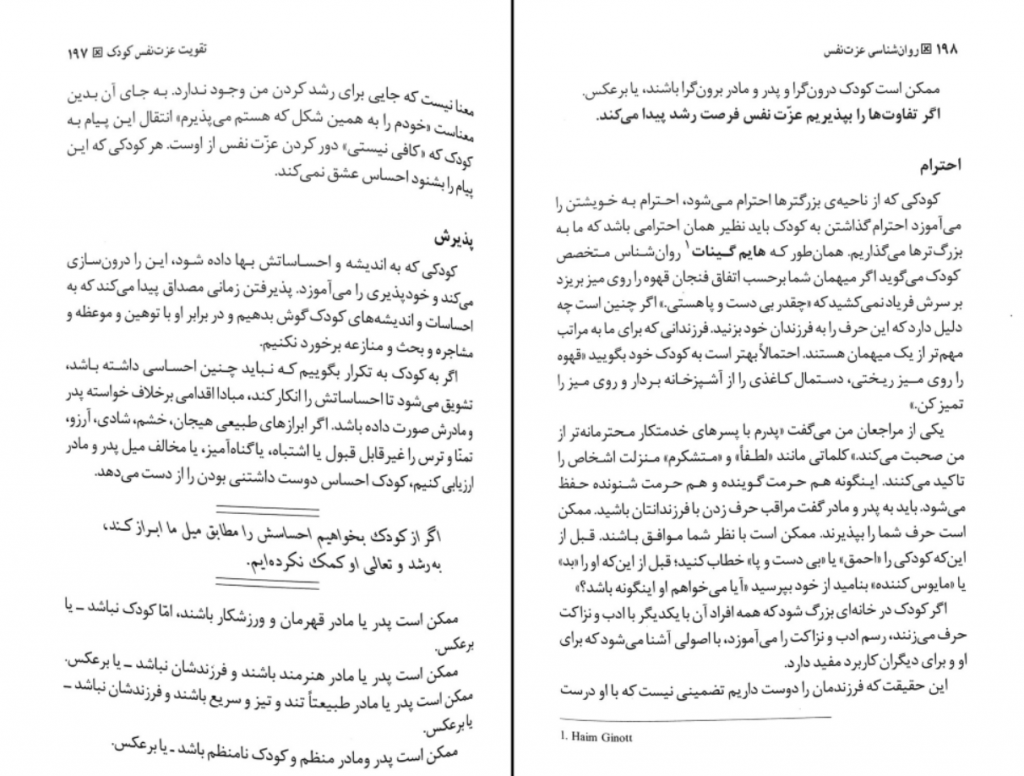 تقویت عزت‌نفس کودک ⊠ ۱۹۷
معنا نیست که جایی برای رشد کردن من وجود ندارد. به جای آن بدین
معناست «خودم را به همین شکل که هستم می‌پذیرم» انتقال این پیام به
کودک که «کافی نیستی» دور کردن عزّت نفس از اوست. هر کودکی که این
پیام را بشنود احساس عشق نمی‌کند.
پذیرش
کودکی که به اندیشه و احساساتش بها داده شود، این را درون‌سازی
می‌کند و خودپذیری را می‌آموزد. پذیرفتن زمانی مصداق پیدا می‌کند که به
احساسات و اندیشه‌های کودک گوش بدهیم و در برابر او با توهین و موعظه و
مشاجره و بحث و منازعه برخورد نکنیم.
اگر به کودک به تکرار بگوییم که نباید چنین احساسی داشته باشد،
تشویق می‌شود تا احساساتش را انکار کند، مبادا اقدامی برخلاف خواسته پدر
و مادرش صورت داده باشد. اگر ابرازهای طبیعی هیجان، خشم، شادی، آرزو،
تمنّا و ترس را غیرقابل قبول یا اشتباه، یا گناه‌آمیز، یا مخالف میل پدر و مادر
ارزیابی کنیم، کودک احساس دوست داشتنی بودن را از دست می‌دهد.
اگر از کودک بخواهیم احساسش را مطابق میل ما ابراز کند،
به‌رشد و تعالی او کمک نکرده‌ایم.
ممکن است پدر یا مادر قهرمان و ورزشکار باشند، امّا کودک نباشد ـ یا
برعکس.
ممکن است پدر یا مادر هنرمند باشند و فرزندشان نباشد ـ یا برعکس.
ممکن است پدر یا مادر طبیعتاً تند و تیز و سریع باشند و فرزندشان نباشد ـ
یا برعکس.
ممکن است پدر ومادر منظم و کودک نامنظم باشد ـ یا برعکس.
۱۹۸ ⊠ روان‌شناسی عزت‌نفس
ممکن است کودک درون‌گرا و پدر و مادر برون‌گرا باشند، یا برعکس.
اگر تفاوت‌ها را بپذیریم عزّت نفس فرصت رشد پیدا می‌کند.
احترام
کودکی که از ناحیه‌ی بزرگترها احترام می‌شود، احترام به خویشتن را
می‌آموزد احترام گذاشتن به کودک باید نظیر همان احترامی باشد که ما به
بزرگ‌ترها می‌گذاریم. همان‌طور که هایم گینات۱ روان‌شناس متخصص
کودک می‌گوید اگر میهمان شما برحسب اتفاق فنجان قهوه را روی میز بریزد
بر سرش فریاد نمی‌کشید که «چقدر بی دست و پا هستی.» اگر چنین است چه
دلیل دارد که این حرف را به فرزندان خود بزنید. فرزندانی که برای ما به مراتب
مهم‌تر از یک میهمان هستند. احتمالاً بهتر است به کودک خود بگویید «قهوه
را روی میز ریختی، دستمال کاغذی را از آشپزخانه بردار و روی میز را
تمیز کن.»
یکی از مراجعان من می‌گفت «پدرم با پسرهای خدمتکار محترمانه‌تر از
من صحبت می‌کند.» کلماتی مانند «لطفاً» و «متشکرم» منزلت اشخاص را
تاکید می‌کنند. اینگونه هم حرمت گوینده و هم حرمت شنونده حفظ
می‌شود. باید به پدر و مادر گفت مراقب حرف زدن با فرزندانتان باشید. ممکن
است حرف شما را بپذیرند. ممکن است با نظر شما موافق باشند. قبل از
این‌که کودکی را «احمق» یا «بی دست و پا» خطاب کنید؛ قبل از این‌که او را «بد»
یا «مایوس کننده» بنامید از خود بپرسید «آیا می‌خواهم او اینگونه باشد؟»
اگر کودک در خانه‌ای بزرگ شود که همه افراد آن با یکدیگر با ادب و نزاکت
حرف می‌زنند، رسم ادب و نزاکت را می‌آموزد، با اصولی آشنا می‌شود که برای
او و برای دیگران کاربرد مفید دارد.
این حقیقت که فرزندمان را دوست داریم تضمینی نیست که با او درست
1. Haim Ginott